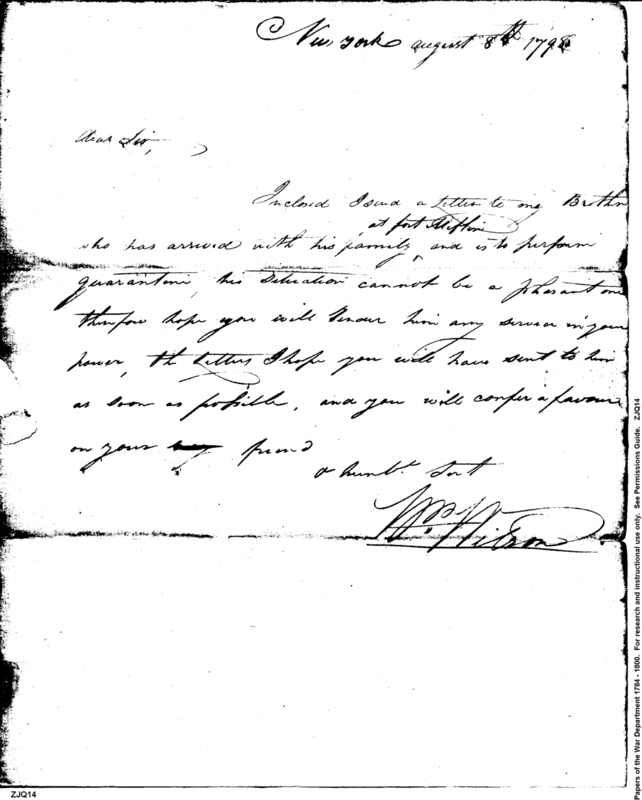 New York august 8th 1798
Dear Sir,
Inclosed I send a Letter to my Brother
at fort Mifflin
who has arrived with his family, and is to perform
quarantine, his Situation cannot be a pleasant one
therefore hope you will Render him any service in your
power, the Letters I hope you will have sent to him
as soon as possible, and you will confer a favour
on your friend
& Humbe. Sert
Wm. Wilson
ZJQ14
Papers of the War Department 1784 - 1800. For research and instructional use only. See Permissions Guide. ZJQ14